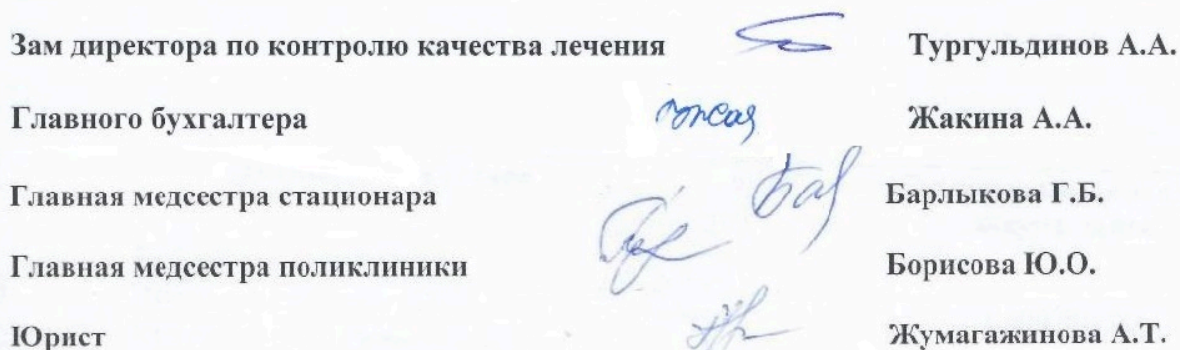 Зам директора по контролю качества лечения Тургульдинов А.А.
Главного бухгалтера Жакина А.А.
Главная медсестра стационара Барлыкова Г.Б.
Главная медсестра поликлиники Борисова Ю.О.
Юрист Жумагажинова А.Т.